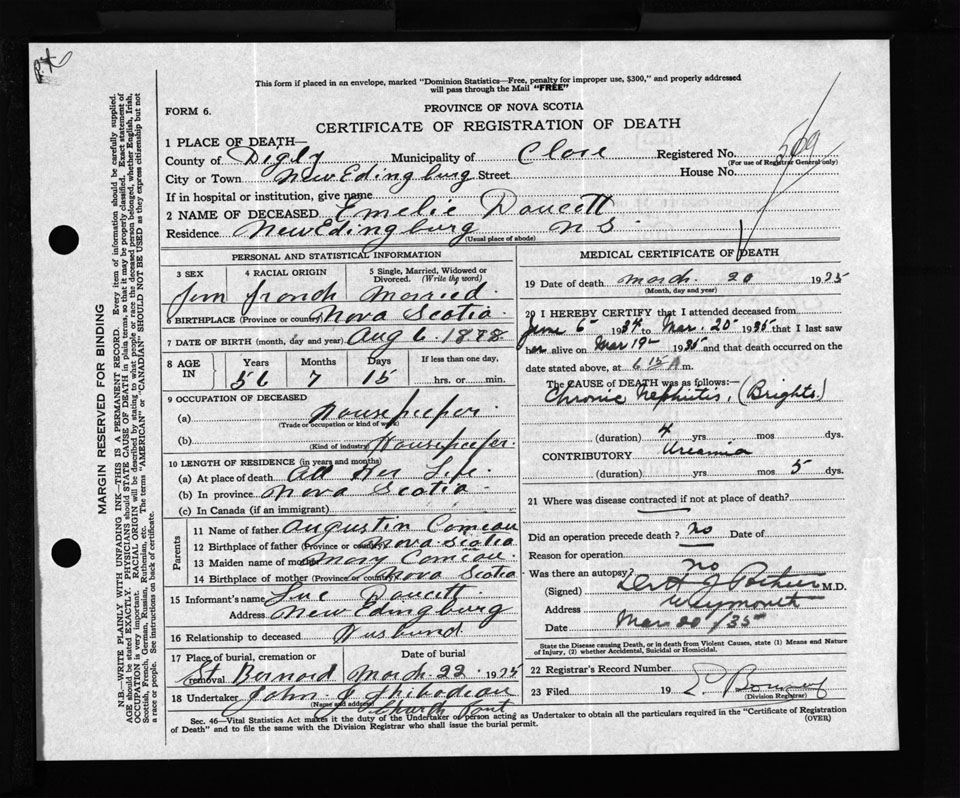 This form if placed in an envelope, marked "Dominion Statistics—Free, penalty for improper use, $300," and properly addressed
will pass through the Mail "FREE"
FORM 6.
PROVINCE OF NOVA SCOTIA
CERTIFICATE OF REGISTRATION OF DEATH
1 PLACE OF DEATH—
County of Digby Municipality of Clare Registered No. 509
(For use of Registrar General only)
City or Town New Edingburg Street House No.
If in hospital or institution, give name
2 NAME OF DECEASED Emelie Doucett
Residence New Edingburg N S
(Usual place of abode)
PERSONAL AND STATISTICAL INFORMATION
3 SEX 4 RACIAL ORIGIN 5 Single, Married, Widowed or Divorced. (Write the word)
Fem French Married
6 BIRTHPLACE (Province or country) Nova Scotia
7 DATE OF BIRTH (month, day and year) Aug 6. 1878
8 AGE IN Years Months Days If less than one day,
56 7 15 hrs. or min.
9 OCCUPATION OF DECEASED
(a) Housekeeper
(Trade or occupation or kind of work)
(b) Housekeeper
(Kind of industry)
10 LENGTH OF RESIDENCE (in years and months)
(a) At place of death All Her Life
(b) In province Nova Scotia
(c) In Canada (if an immigrant)
Parents
11 Name of father Augustin Comeau
12 Birthplace of father (Province or country) Nova Scotia
13 Maiden name of mother Mary Comeau
14 Birthplace of mother (Province or country) Nova Scotia
15 Informant's name Luc Doucett
Address New Edingburg
16 Relationship to deceased Husbund
17 Place of burial, cremation or removal Date of burial
St Bernard March 22 1935
18 Undertaker John J Thibodeau
(Name and address) Church Point
MEDICAL CERTIFICATE OF DEATH
19 Date of death March 20 1935
(Month, day and year)
20 I HEREBY CERTIFY that I attended deceased from
June 6 1934 to Mar. 20 1935 that I last saw
her alive on Mar 19 1935 and that death occurred on the
date stated above, at 6 15 A m.
The CAUSE of DEATH was as follows:—
Chronic Nephritis, (Brights.)
(duration) 4 yrs mos dys.
CONTRIBUTORY Uraemia
(duration) yrs. mos 5 dys.
21 Where was disease contracted if not at place of death?
Did an operation precede death? No Date of
Reason for operation
Was there an autopsy? No
(Signed) M.D.
Address Weymouth
Date Mar 20/35
State the Disease causing Death, or in death from Violent Causes, state (1) Means and Nature
of Injury, (2) whether Accidental, Suicidal or Homicidal.
22 Registrar's Record Number
23 Filed 19
(Division Registrar)
Sec. 46—Vital Statistics Act makes it the duty of the Undertaker or person acting as Undertaker to obtain all the particulars required in the "Certificate of Registration
of Death" and to file the same with the Division Registrar who shall issue the burial permit. (OVER)
MARGIN RESERVED FOR BINDING
N.B.—WRITE PLAINLY WITH UNFADING INK—THIS IS A PERMANENT RECORD. Every item of information should be carefully supplied.
AGE should be stated EXACTLY. PHYSICIANS should STATE CAUSE OF DEATH in plain terms, so that it may be properly classified. Exact statement of
OCCUPATION is very important. RACIAL ORIGIN will be described by stating to what people or race the deceased person belonged, whether English, Irish,
Scottish, French, German, Russian, Ruthenian, etc. The terms "AMERICAN" or "CANADIAN" SHOULD NOT BE USED as they express citizenship but not
a race or people. See instructions on back of certificate.